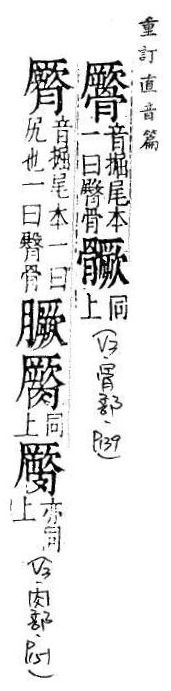 重訂直音篇
音掘尾本
一曰臀骨
同上
(V3.骨部.P139)
音掘尾本一曰
尻也一曰臀骨
同上
亦同上
(V3.肉部.P151)